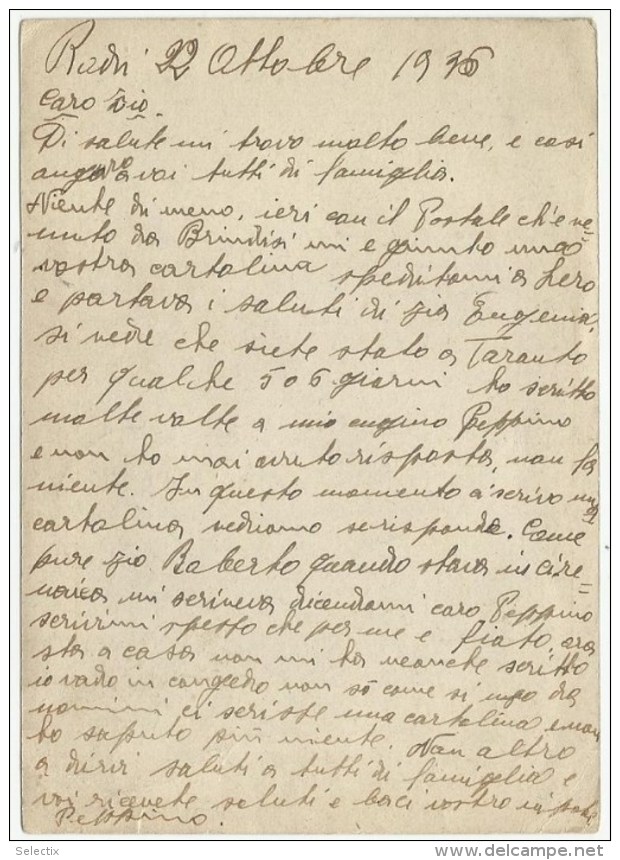 Rodi 22 Ottobre 1936
Caro zio.
Di salute mi trovo molto bene, e cosi
auguro a voi tutti di famiglia.
Niente di meno, ieri con il Postale ch'e ve=
nuto da Brindisi mi e giunto una
vostra cartolina speditami a Lero
e portava i saluti di zia Eugenia,
si vede che siete stato a Taranto
per qualche 5 o 6 giorni ho scritto
molte volte a mio cugino Peppino
e non ho mai avuto risposta, non fa
niente. In questo momento ci scrivo una
cartolina vediamo se risponde. Come
pure zio Roberto quando stava in Cire=
naica mi scriveva dicendomi caro Peppino
scrivimi spesso che per me e fiato, ora
sta a casa non mi ha neanche scritto
io vado in congedo non so come si
ci scrisse una cartolina e non
ho saputo più niente. Non altro
a dirvi saluti a tutti di famiglia e
voi ricevete saluti e baci vostro nipote
Peppino.
© Selectix
www.delcampe.net